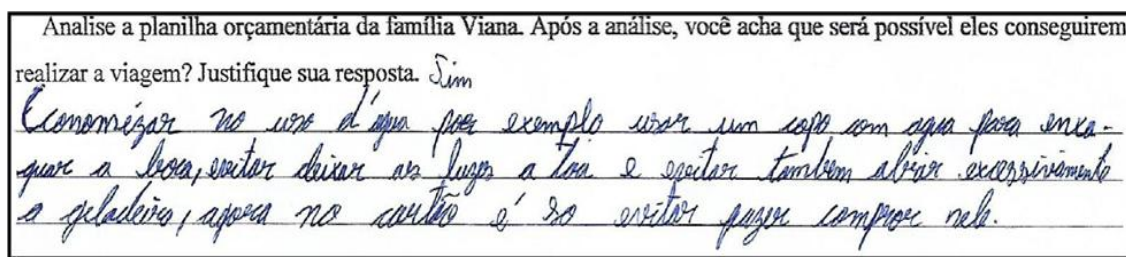 Analise a planilha orçamentária da família Viana. Após a análise, você acha que será possível eles conseguirem
realizar a viagem? Justifique sua resposta. Sim
Economizar no uso d'água por exemplo usar um copo com agua para enxa-
guar a boca, evitar deixar as luzes a toa e evitar também abrir excessivamente
a geladeira, agora no cartão é so evitar fazer comprar nele.